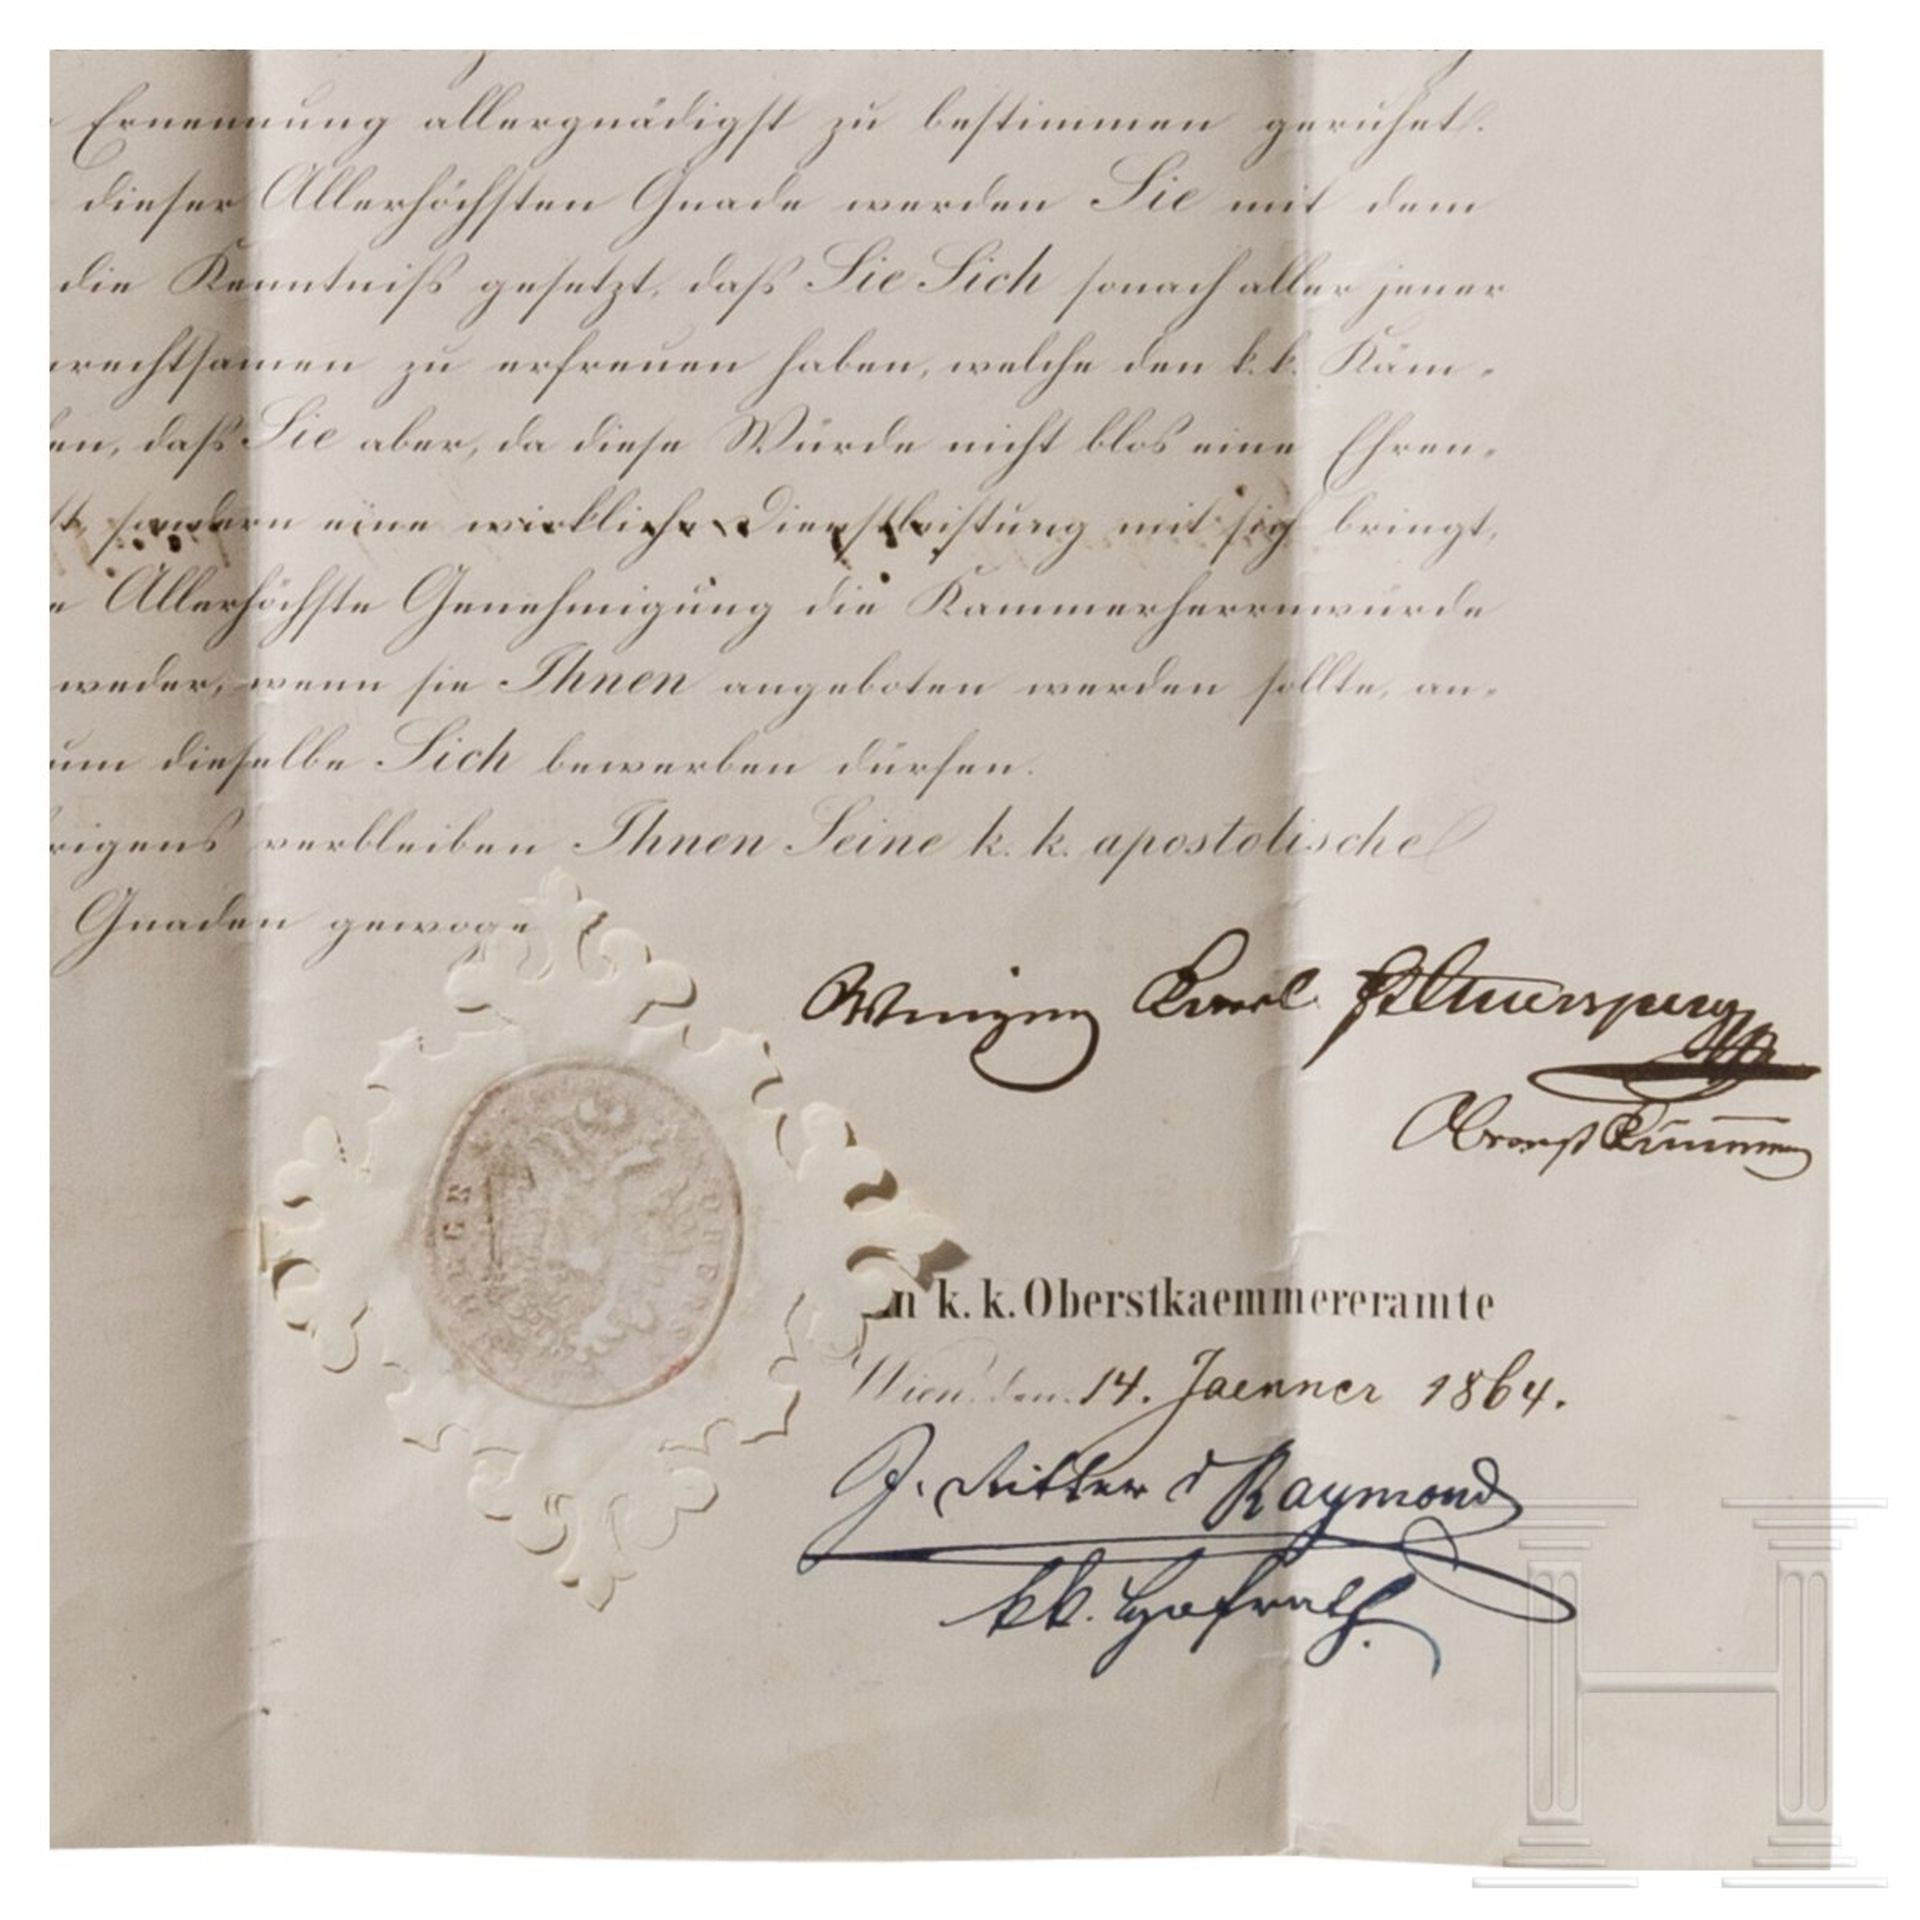 Ernennung allergnädigst zu bestimmen geruhet.
dieser Allerhöchsten Gnade werden Sie mit dem
die Kenntniß gesetzt, daß Sie Sich sonach aller jener
rechtsamen zu erfreuen haben, welche den k. k. Käm-
en, daß Sie aber, da diese Würde nicht blos eine Ehren-
sondern eine wirkliche Dienstleistung mit sich bringt,
Allerhöchste Genehmigung die Kammerherrnwürde
weder, wenn sie Ihnen angeboten werden sollte, an-
um dieselbe Sich bewerben dürfen.
rigens verbleiben Ihnen Seine k. k. apostolische
Gnaden gewoge
Karl Auersperg
Oberstkämmerer
In k. k. Oberstkaemmereramte
Wien, den 14. Jaenner 1864.
J. Ritter d Raymond
kk. Hofrath.
H